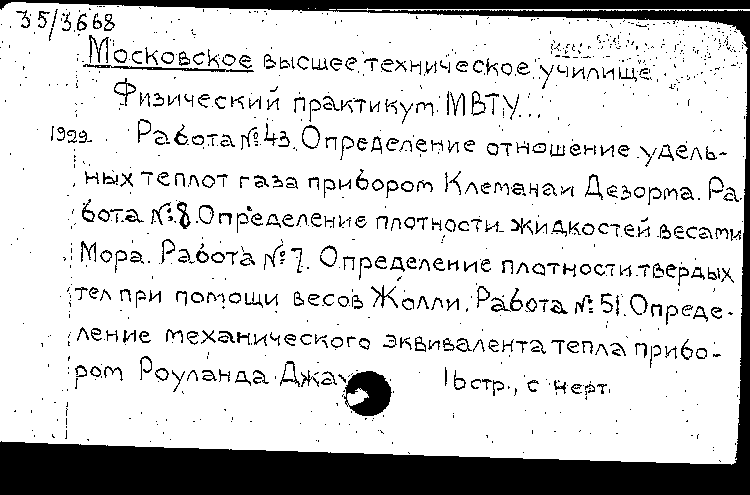 35/3668
Московское высшее техническое училище
Физический практикум МВТУ...
1929 Работа № 43. Определение отношение удель-
ных теплот газа прибором Клемана и Дезорма. Ра
бота № 8. Определение плотности жидкостей весами
Мора. Работа № 7. Определение плотности твердых
тел при помощи весов Жолли. Работа № 51. Опреде-
ление механического эквивалента тепла прибо-
ром Роуланда Джау 16 стр., с черт.